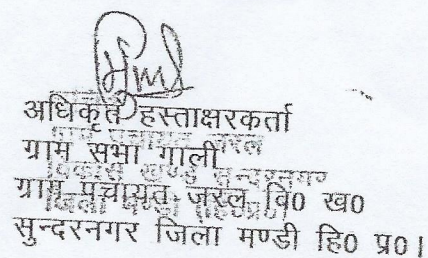 अधिकृत हस्ताक्षरकर्ता
ग्राम सभा गाली
ग्राम पंचायत जरल वि0 ख0
सुन्दरनगर जिला मण्डी हि0 प्र0।